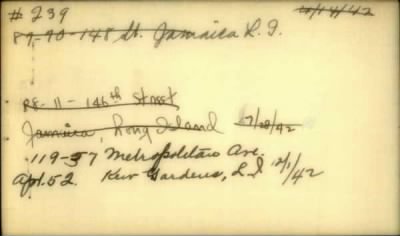 # 239
89-90-148 St. Jamaica L.I. 4/14/42
88-11-146th Street
Jamaica, Long Island 7/28/42
119-57 Metropolitan Ave.
Apt. 52. Kew Gardens, L.I 12/1/42